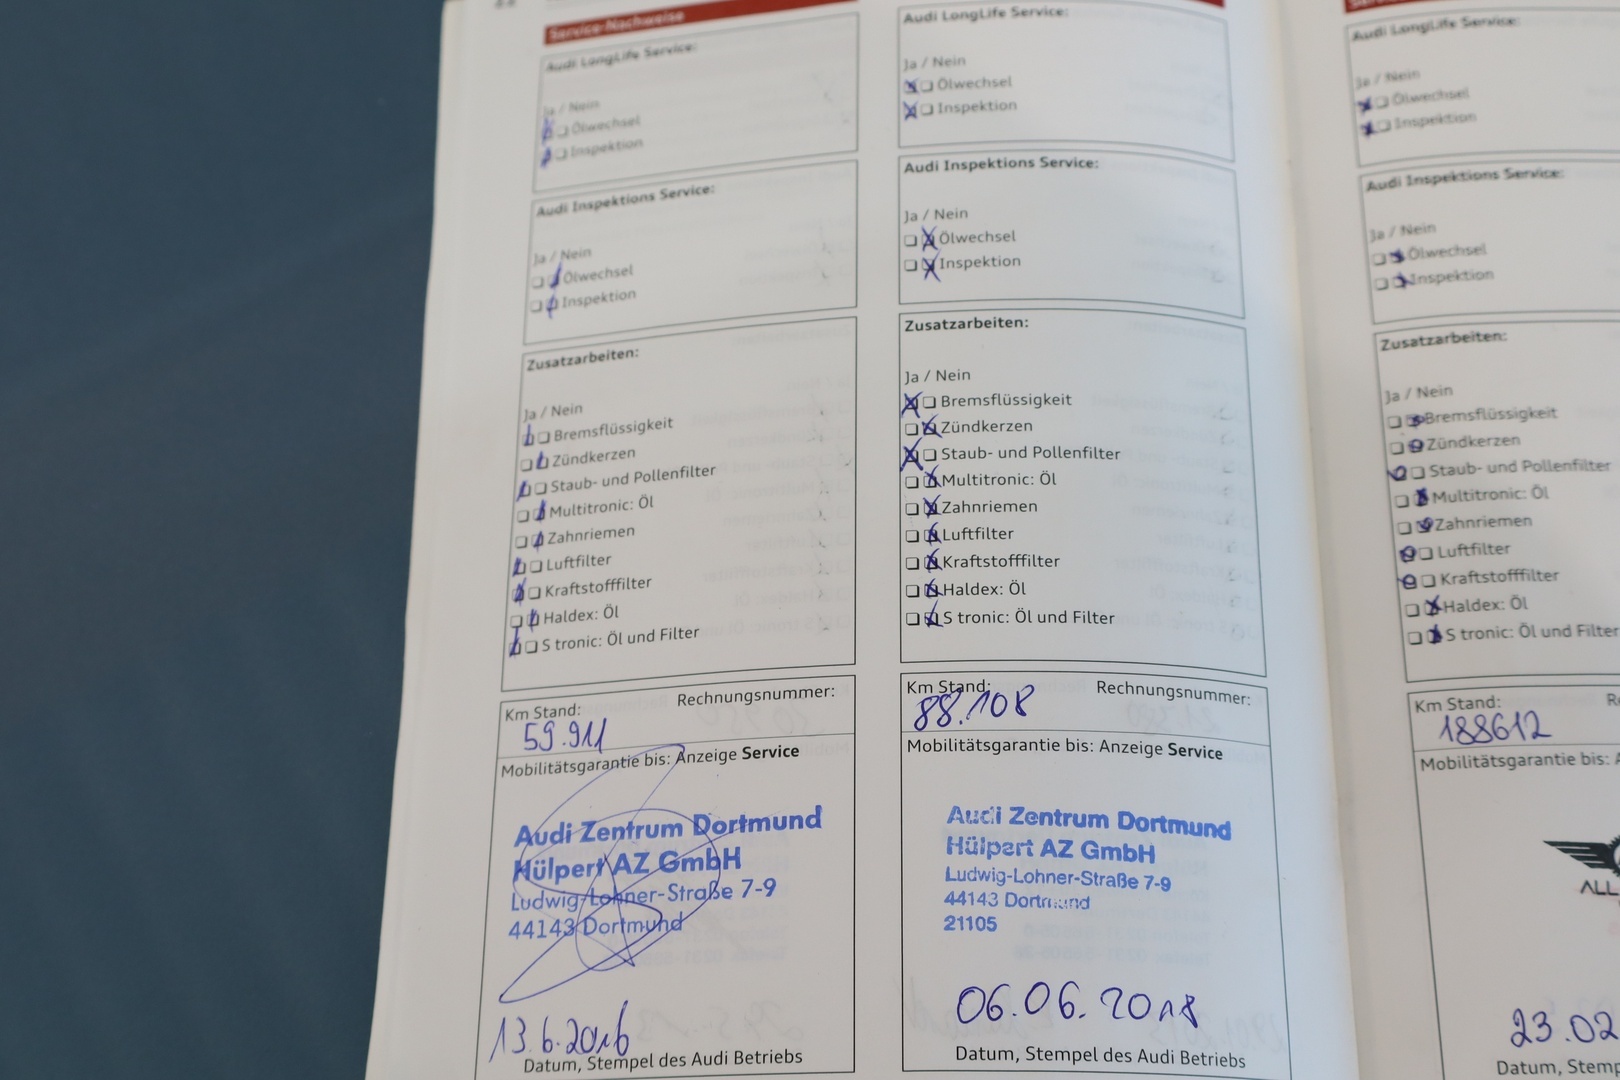 Service-Nachweise
Audi LongLife Service:
Ja / Nein
Ölwechsel
Inspektion
Audi Inspektions Service:
Ja / Nein
Ölwechsel
Inspektion
Zusatzarbeiten:
Ja / Nein
Bremsflüssigkeit
Zündkerzen
Staub- und Pollenfilter
Multitronic: Öl
Zahnriemen
Luftfilter
Kraftstofffilter
Haldex: Öl
S tronic: Öl und Filter
Km Stand: Rechnungsnummer:
59.911
Mobilitätsgarantie bis: Anzeige Service
Audi Zentrum Dortmund
Hülpert AZ GmbH
Ludwig-Lohner-Straße 7-9
44143 Dortmund
13.6.2016
Datum, Stempel des Audi Betriebs
Audi LongLife Service:
Ja / Nein
Ölwechsel
Inspektion
Audi Inspektions Service:
Ja / Nein
Ölwechsel
Inspektion
Zusatzarbeiten:
Ja / Nein
Bremsflüssigkeit
Zündkerzen
Staub- und Pollenfilter
Multitronic: Öl
Zahnriemen
Luftfilter
Kraftstofffilter
Haldex: Öl
S tronic: Öl und Filter
Km Stand: Rechnungsnummer:
88.108
Mobilitätsgarantie bis: Anzeige Service
Audi Zentrum Dortmund
Hülpert AZ GmbH
Ludwig-Lohner-Straße 7-9
44143 Dortmund
21105
06.06.2018
Datum, Stempel des Audi Betriebs
Audi LongLife Service:
Ja / Nein
Ölwechsel
Inspektion
Audi Inspektions Service:
Ja / Nein
Ölwechsel
Inspektion
Zusatzarbeiten:
Ja / Nein
Bremsflüssigkeit
Zündkerzen
Staub- und Pollenfilter
Multitronic: Öl
Zahnriemen
Luftfilter
Kraftstofffilter
Haldex: Öl
S tronic: Öl und Filter
Km Stand:
188612
Mobilitätsgarantie bis:
ALL
23.02
Datum,